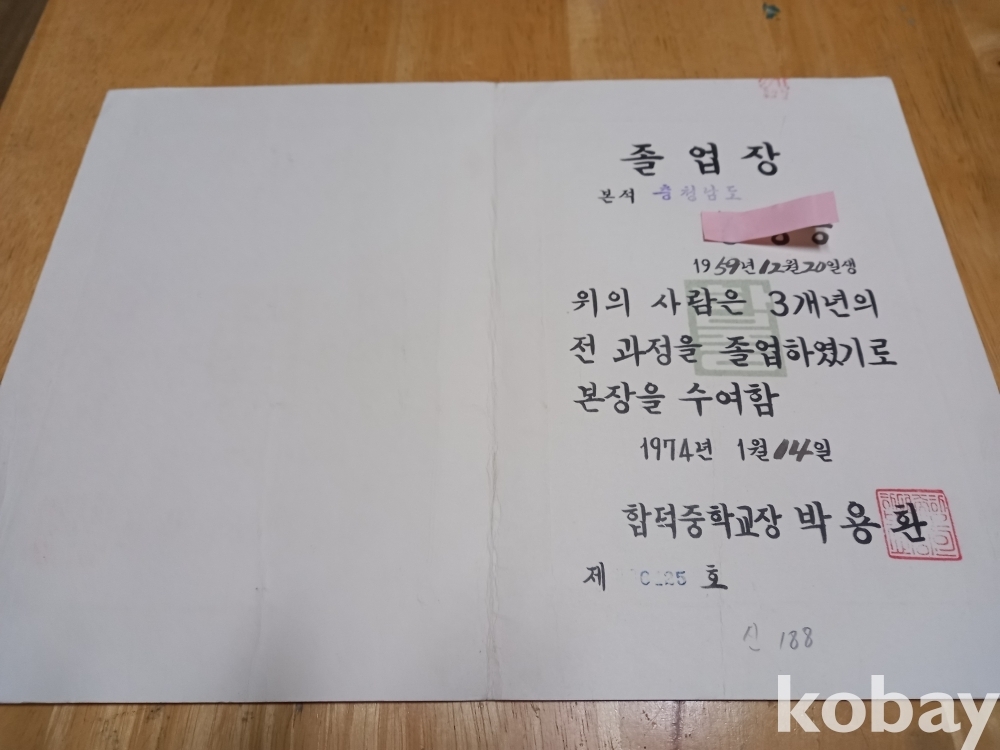 졸업장
본적 충청남도
1959년 12월 20일생
위의 사람은 3개년의
전 과정을 졸업하였기로
본장을 수여함
1974년 1월 14일
합덕중학교장 박용환
제 호
신 188
kobay